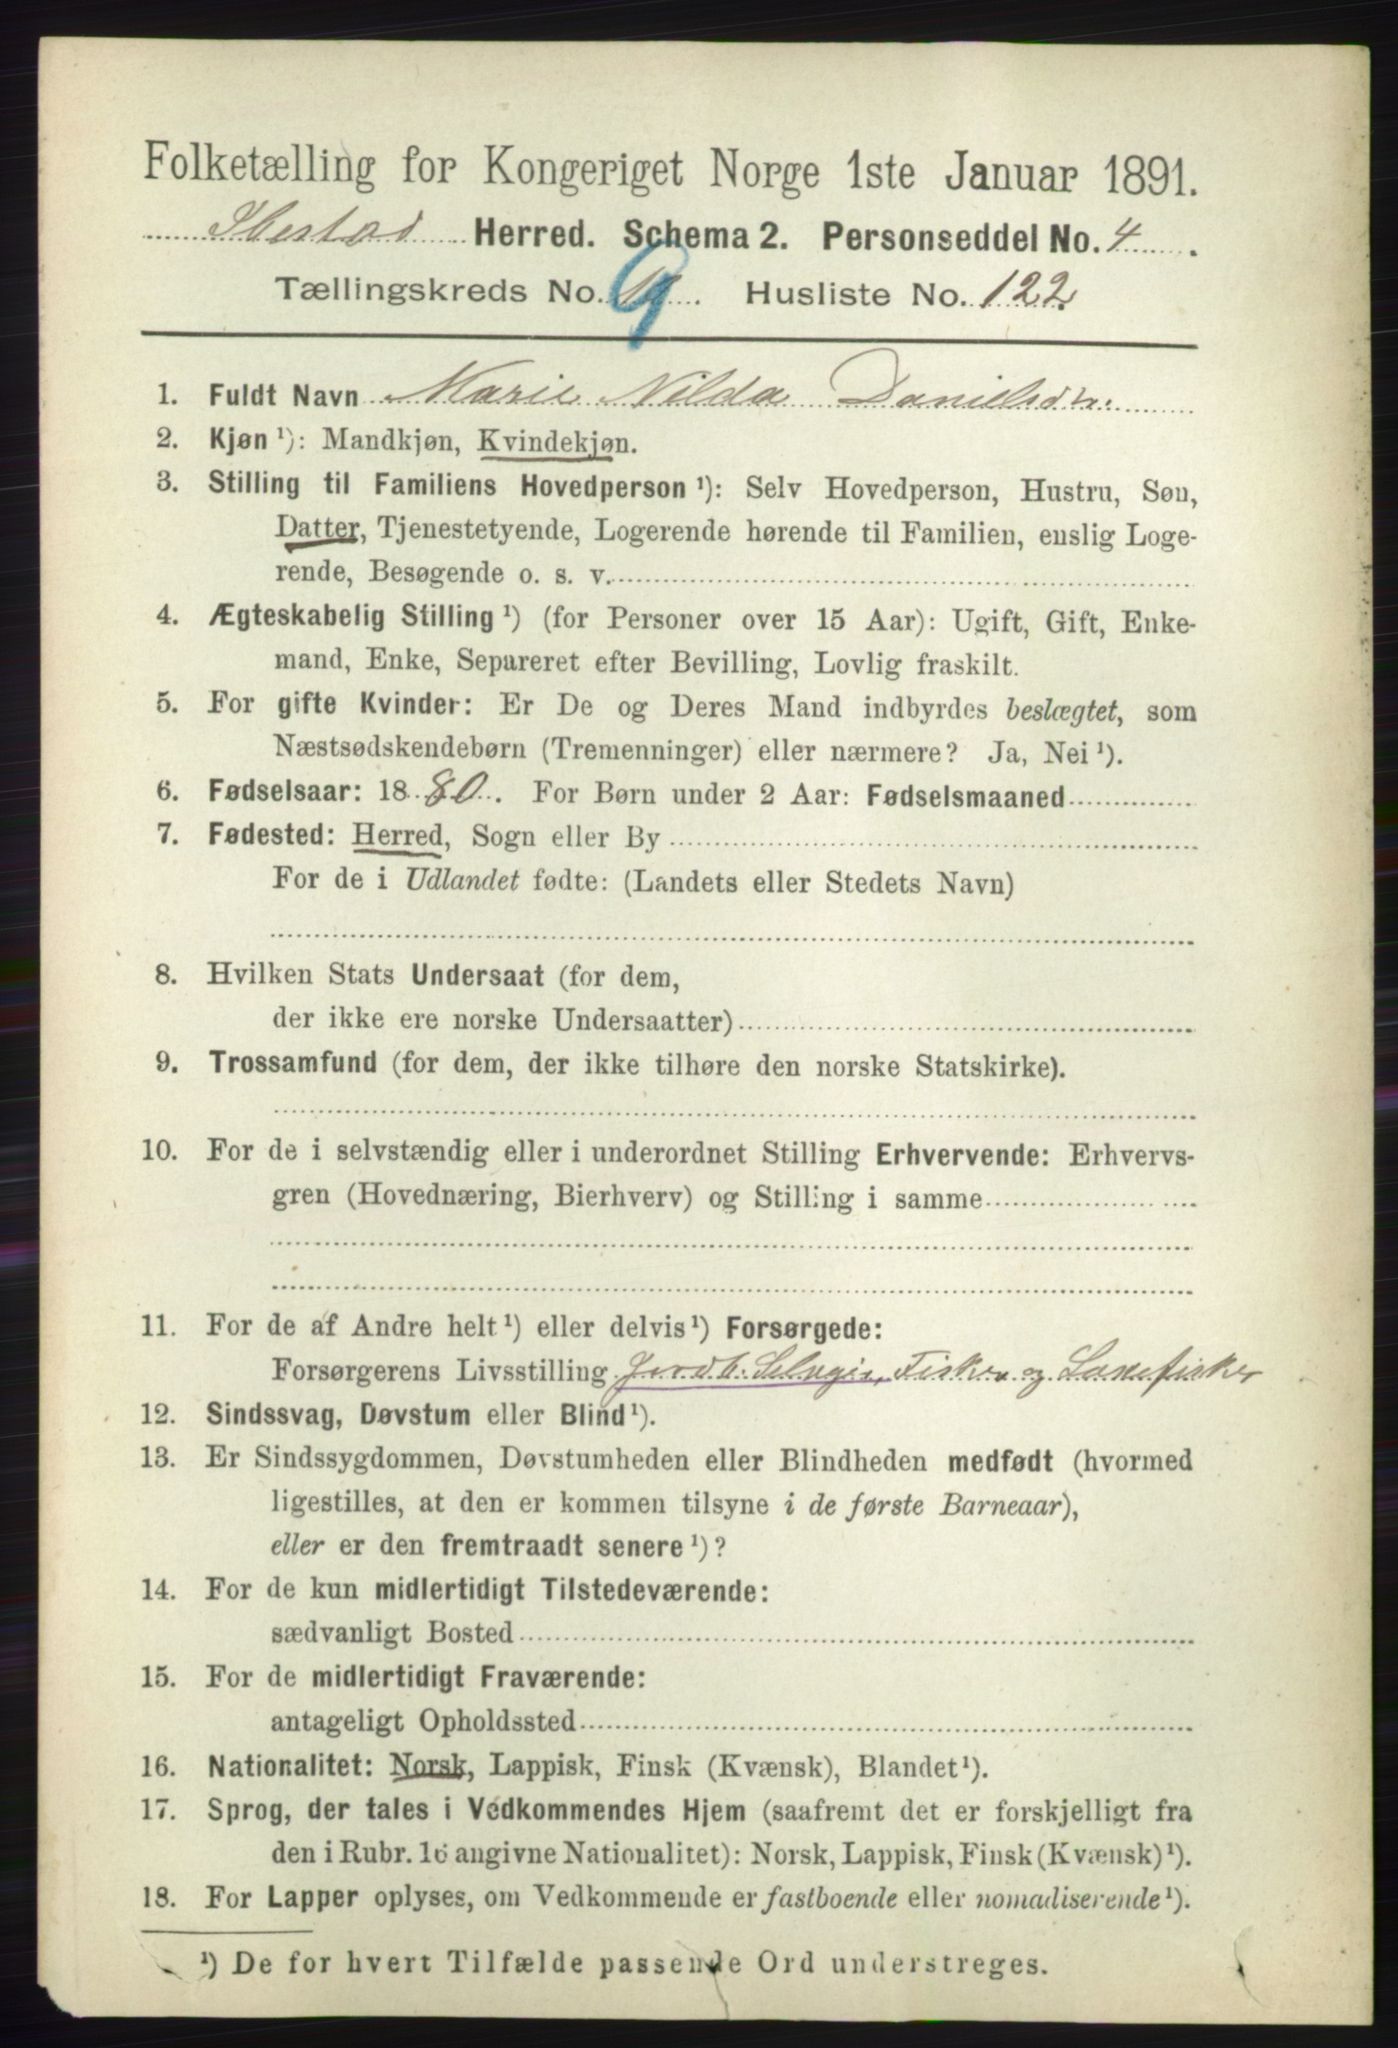 Folketælling for Kongeriget Norge 1ste Januar 1891.
Ibestad Herred. Schema 2. Personseddel No. 4.
Tællingskreds No. 9. Husliste No. 122.
1. Fuldt Navn Marie Nilda Danielsdtr.
2. Kjøn ¹): Mandkjøn, Kvindekjøn.
3. Stilling til Familiens Hovedperson ¹): Selv Hovedperson, Hustru, Søn,
Datter, Tjenestetyende, Logerende hørende til Familien, enslig Loge-
rende, Besøgende o. s. v.
4. Ægteskabelig Stilling ¹) (for Personer over 15 Aar): Ugift, Gift, Enke-
mand, Enke, Separeret efter Bevilling, Lovlig fraskilt.
5. For gifte Kvinder: Er De og Deres Mand indbyrdes beslægtet, som
Næstsødskendebørn (Tremenninger) eller nærmere? Ja, Nei ¹).
6. Fødselsaar: 1880. For Børn under 2 Aar: Fødselsmaaned
7. Fødested: Herred, Sogn eller By
For de i Udlandet fødte: (Landets eller Stedets Navn)
8. Hvilken Stats Undersaat (for dem,
der ikke ere norske Undersaatter)
9. Trossamfund (for dem, der ikke tilhøre den norske Statskirke).
10. For de i selvstændig eller i underordnet Stilling Erhvervende: Erhvervs-
gren (Hovednæring, Bierhverv) og Stilling i samme
11. For de af Andre helt ¹) eller delvis ¹) Forsørgede:
Forsørgerens Livsstilling Jordb. Selveier, Fisker og Laxefisker
12. Sindssvag, Døvstum eller Blind ¹).
13. Er Sindssygdommen, Døvstumheden eller Blindheden medfødt (hvormed
ligestilles, at den er kommen tilsyne i de første Barneaar),
eller er den fremtraadt senere ¹)?
14. For de kun midlertidigt Tilstedeværende:
sædvanligt Bosted
15. For de midlertidigt Fraværende:
antageligt Opholdssted
16. Nationalitet: Norsk, Lappisk, Finsk (Kvænsk), Blandet ¹).
17. Sprog, der tales i Vedkommendes Hjem (saafremt det er forskjelligt fra
den i Rubr. 16 angivne Nationalitet): Norsk, Lappisk, Finsk (Kvænsk) ¹).
18. For Lapper oplyses, om Vedkommende er fastboende eller nomadiserende ¹).
¹) De for hvert Tilfælde passende Ord understreges.